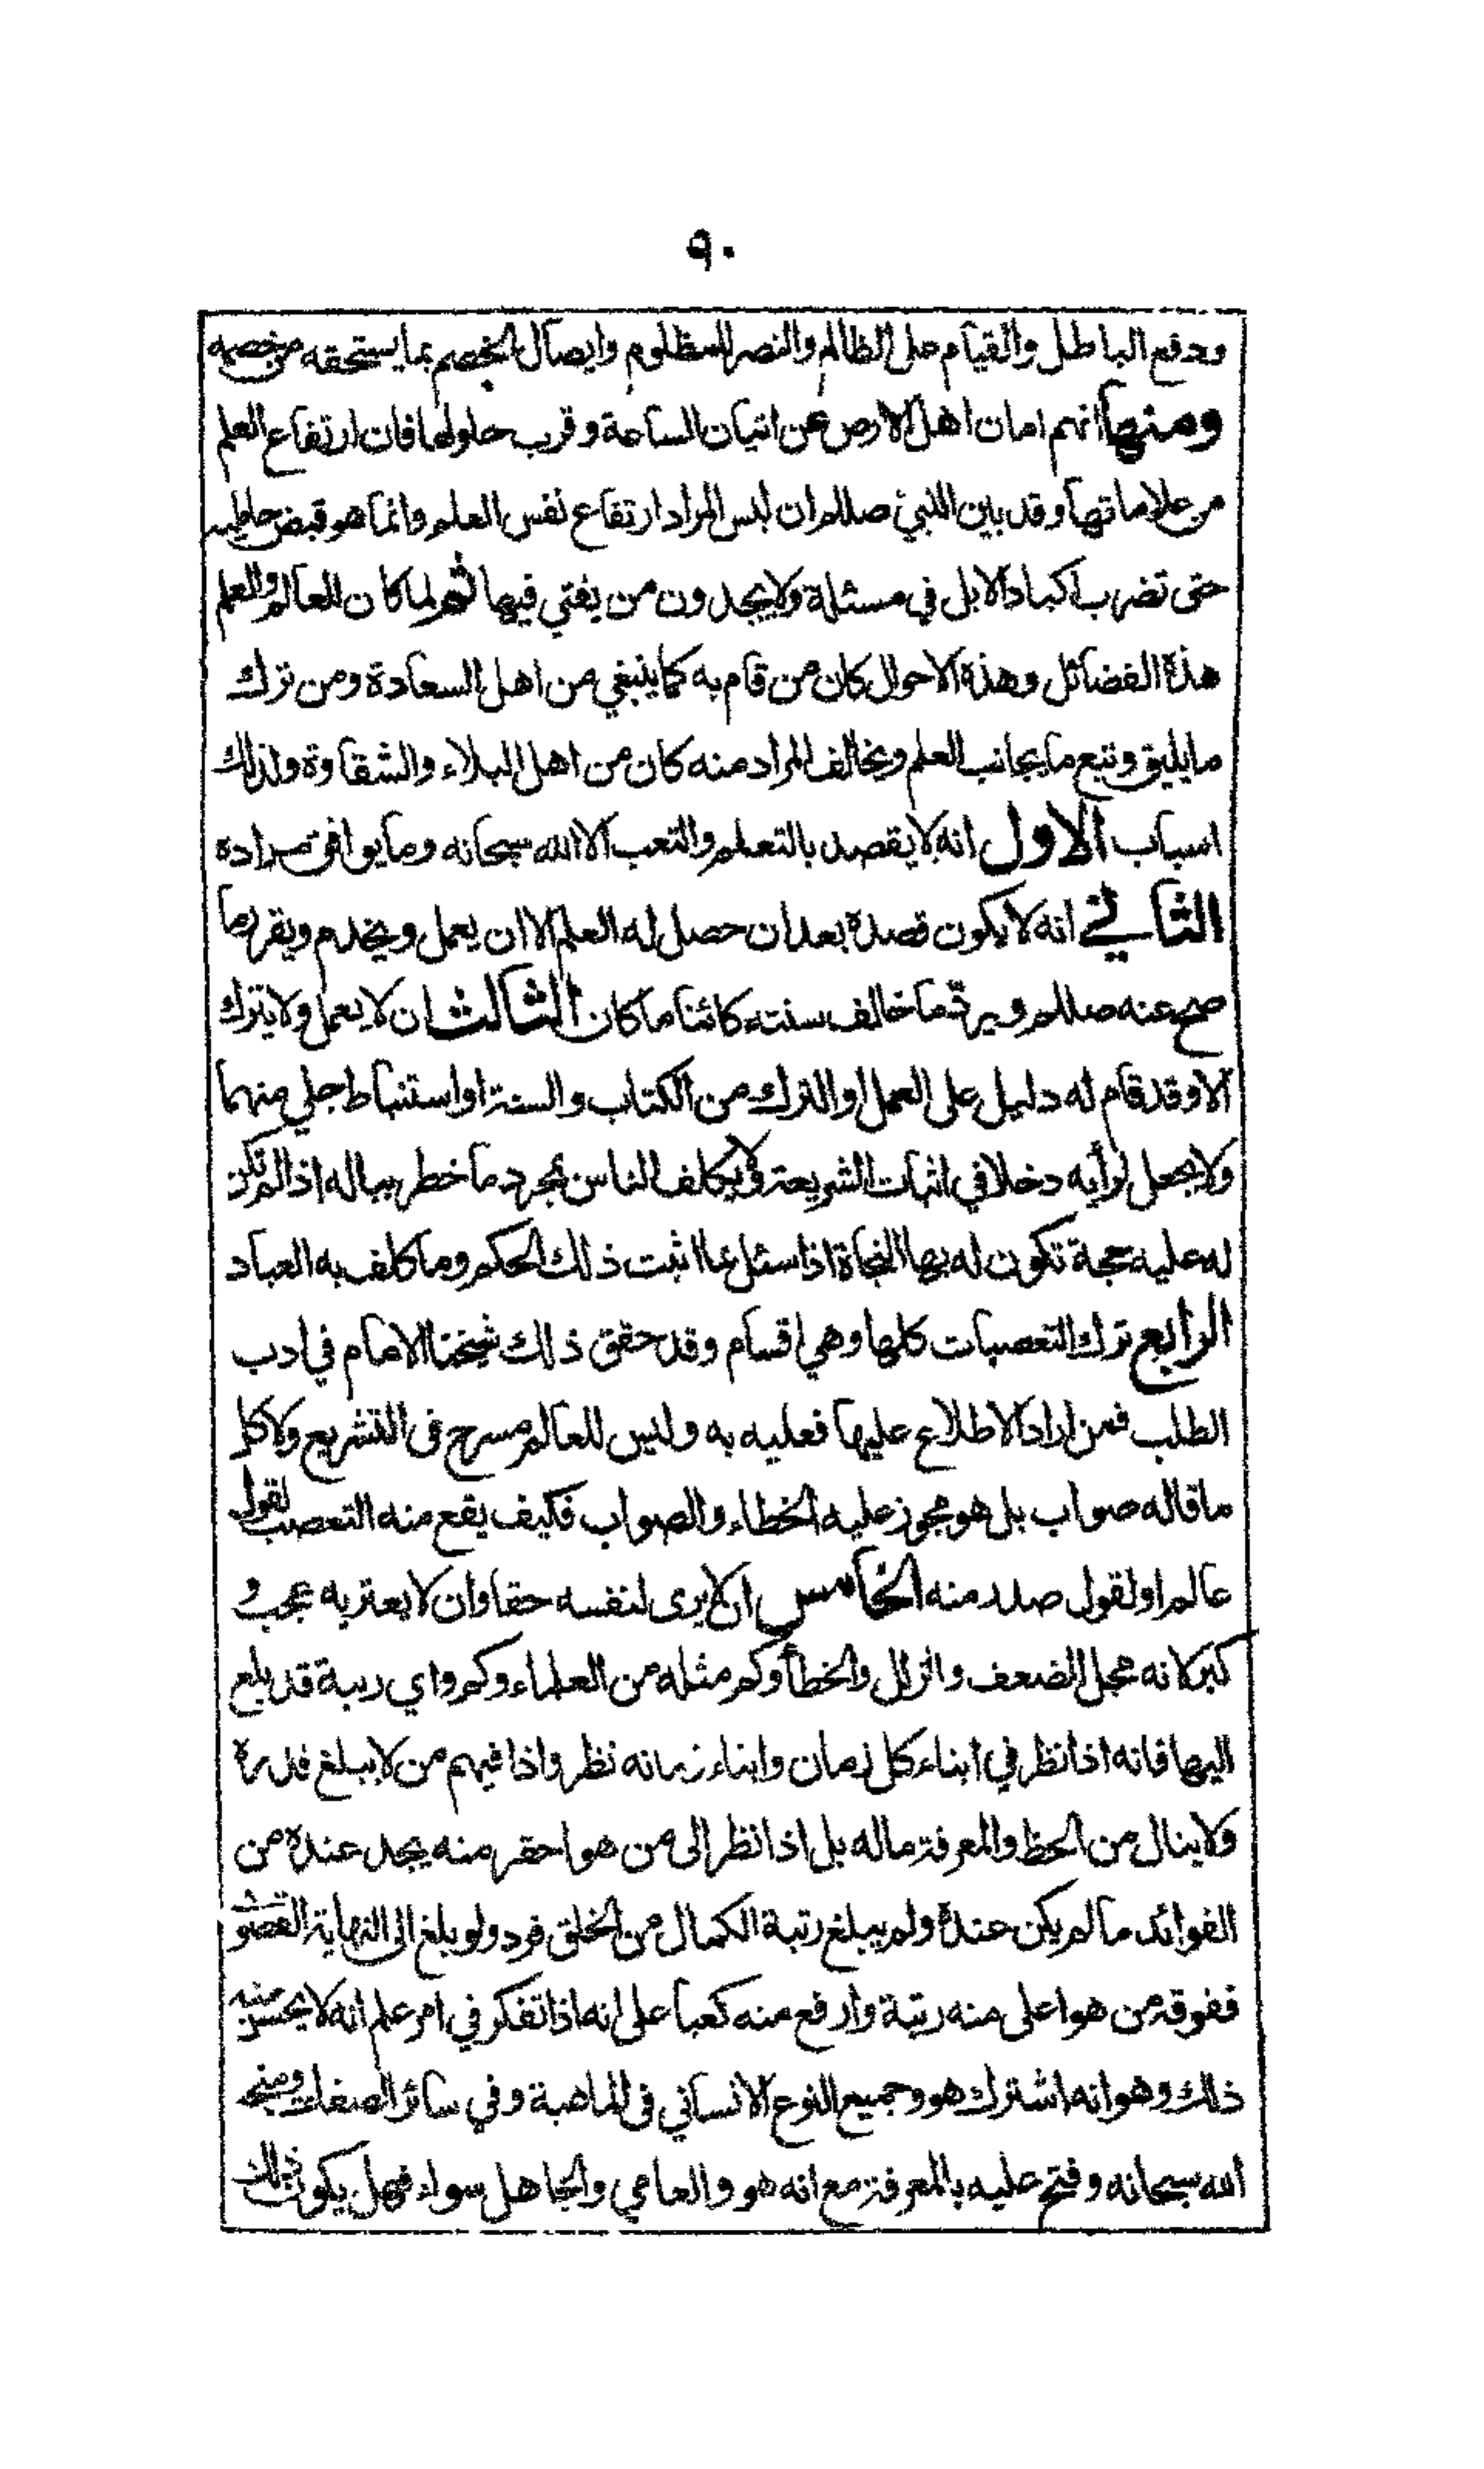 ٩٠
ودفع الباطل والقيام على الظالم والنصر للمظلوم وايصال الخصم بما يستحقه من خصمه
ومنها انهم امان اهل الارض عن اتيان الساعة وقرب حلولها فان ارتفاع العلم
من علاماتها وقد بين النبي صللم ان ليس المراد ارتفاع نفس العلم وانما هو قبض حامليه
حتى تضرب اكباد الابل في مسئلة ولا يجدون من يفتي فيها ثم لما كان للعالم والعلم
هذه الفضائل وهذه الاحوال كان من قام به كما ينبغي من اهل السعادة ومن ترك
ما يليق وتتبع ما يجانب العلم ويخالف المراد منه كان من اهل البلاء والشقاوة ولذلك
اسباب الاول انه لا يقصد بالتعلم والتعب الا الله سبحانه وما يوافق مراده
الثاني انه لا يكون قصده بعد ان حصل له العلم الا ان يعمل ويخدم ويقر لما
صح عنه صللم ويرد ما خالف سنته كائنا ما كان الثالث ان لا يعمل ولا يترك
الا وقد قام له دليل على العمل او الترك من الكتاب والسنة او استنباط جلي منهما
ولا يجعل لرأيه دخلا في اثبات الشريعة ولا يكلف الناس بمجرد ما خطر بباله اذا لم تكن
له عليه حجة تكون له بها النجاة اذا سئل عما اثبت ذلك الحكم وما كلف به العباد
الرابع ترك التعصبات كلها وهي اقسام وقد حقق ذلك شيخنا الامام في ادب
الطلب فمن اراد الاطلاع عليها فعليه به وليس للعالم مسرح في التشريع ولا كل
ما قاله صواب بل هو مجوز عليه الخطاء والصواب فكيف يقع منه التعصب لقول
عالم او لقول صدر منه الخامس ان لا يرى لنفسه حقا وان لا يعتريه عجب و
كبر لانه محل الضعف والزلل والخطأ وكم مثله من العلماء وكم واي رتبة قد بلغ
اليها فانه اذا نظر في ابناء كل زمان وابناء زمانه نظر واذا فيهم من لا يبلغ قدره
ولا ينال من الحظ والمعرفة ماله بل اذا نظر الى من هو احقر منه يجد عنده من
الفوائد ما لم يكن عنده ولم يبلغ رتبة الكمال من الخلق فرد ولو بلغ الى النهاية القصو
ففوقه من هو اعلى منه رتبة وارفع منه كعبا على انه اذا تفكر في امر علم انه لا يحسن منه
ذلك وهو انه اشترك هو وجميع النوع الانساني في الماهية وفي سائر الصفات ومنحه
الله سبحانه وفتح عليه بالمعرفة مع انه هو والعامي والجاهل سواء فهل يكون ذلك